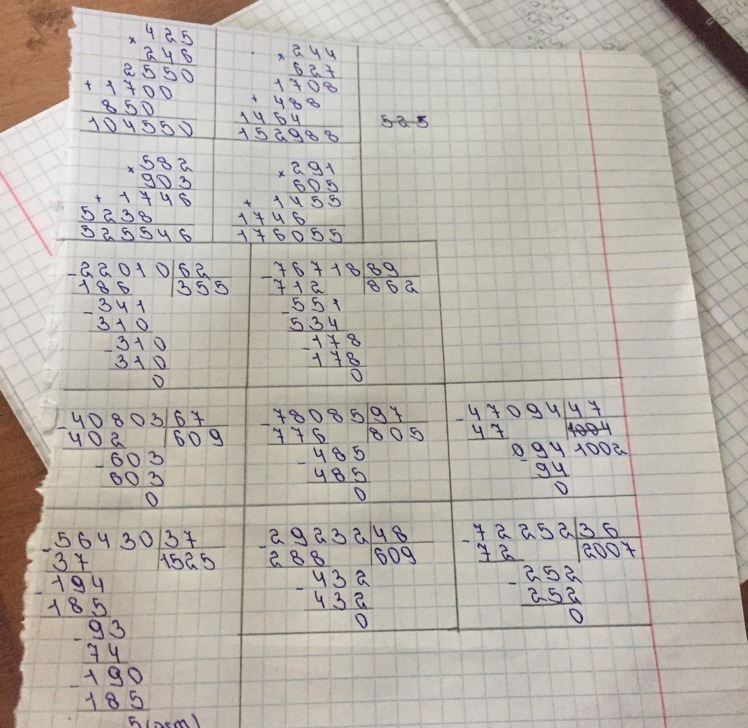 × 425
246
2550
+ 1700
850
104550
× 244
627
1708
+ 488
1464
152988
525
× 582
903
+ 1746
5238
525546
× 291
605
+ 1455
1746
176055
- 22010 62
186 355
- 341
310
- 310
310
0
- 76718 89
712 862
- 551
534
- 178
178
0
- 40803 67
402 609
- 603
603
0
- 78085 97
776 805
- 485
485
0
- 47094 47
47 1004
094 1002
- 94
0
- 56430 37
37 1525
- 194
185
- 93
74
- 190
185
5 (ост)
- 29232 48
288 609
- 432
432
0
- 72252 36
72 2007
- 252
252
0